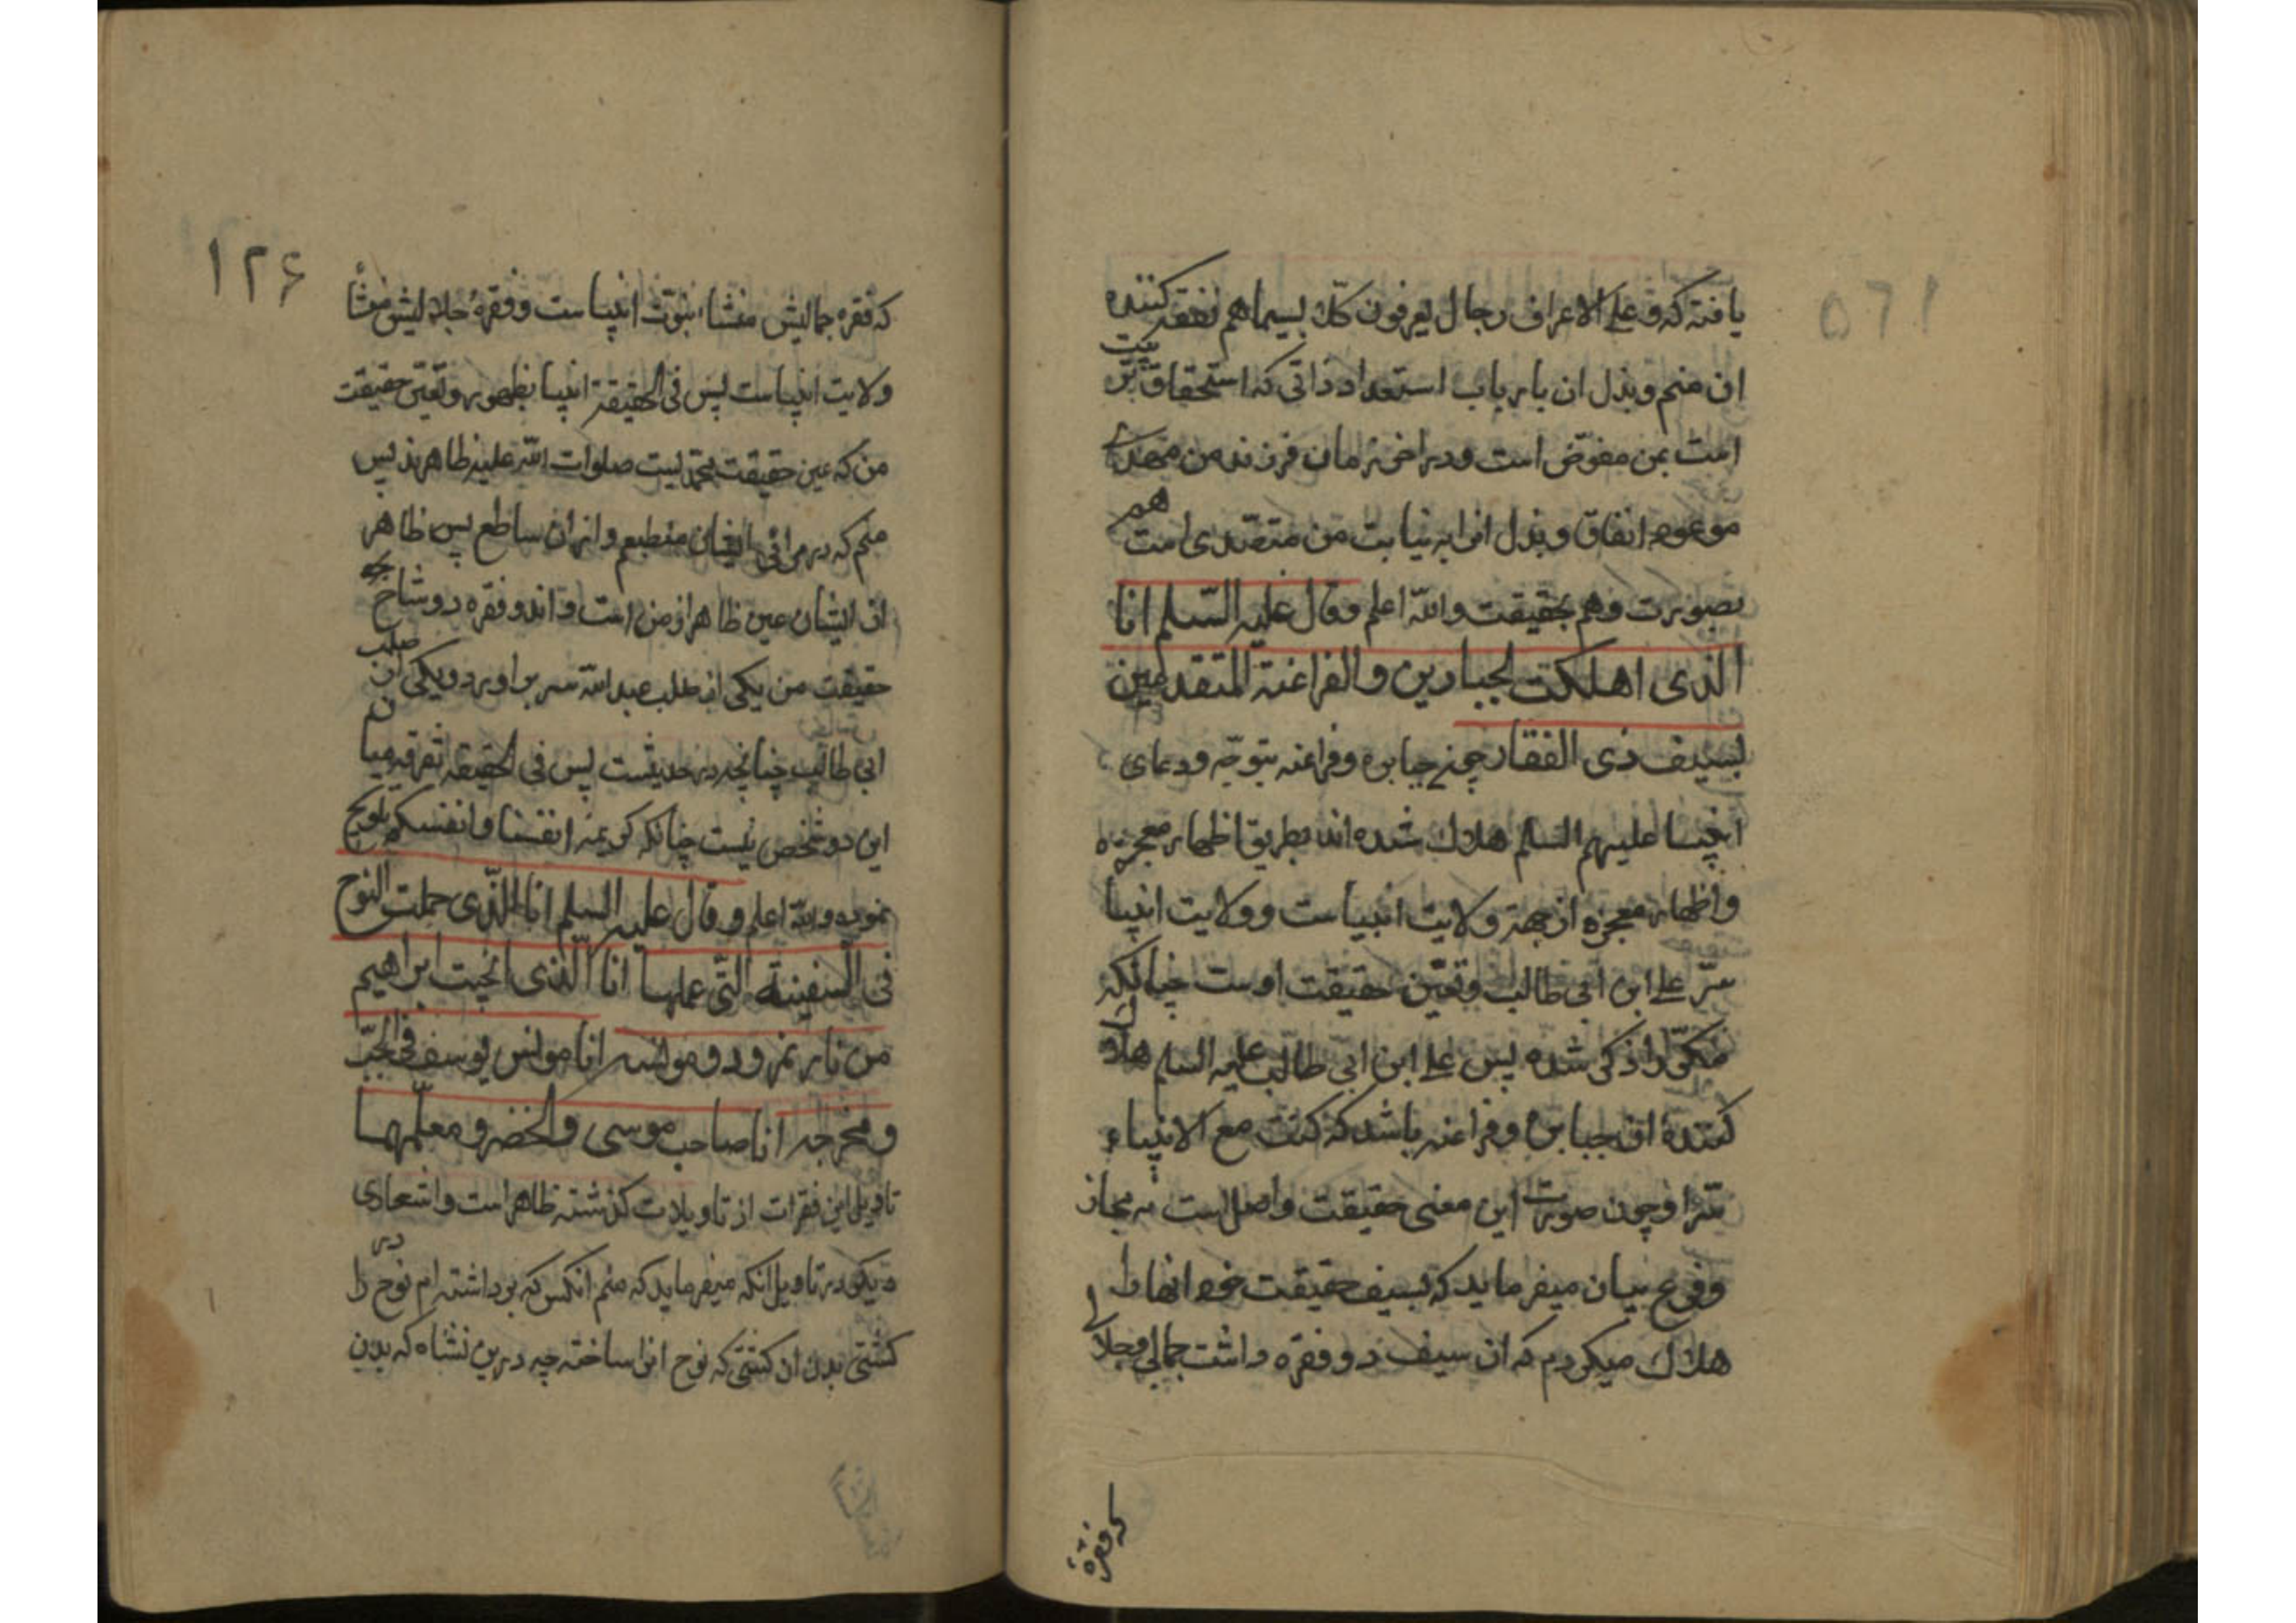 یافته که و علی الاعراف رجال یعرفون کلّا بسیماهم نفقه کننده
ان منم و بذل ان بارباب استعداد ذاتی که استحقاق
است بمن مفوّض است و در اخر زمان فرزند من مهدی
موعود انفاق و بذل انرا به نیابت من متصدی است هم
بصورت و هم بحقیقت واللّه اعلم و قال علیه السّلم انا
الذی اهلکت الجبارین والفراعنة المتقدمین
بسیف ذی الفقار چون جبابره و فراعنه بتوجّه و دعای
انبیا علیهم السلم هلاک شده اند بطریق اظهار معجزه
و اظهار معجزه از جهة ولایت انبیاست و ولایت انبیا
سرّ علی ابن ابی طالب و تعیّن حقیقت اوست چنانکه
مکرّرا ذکر شده پس علی ابن ابی طالب علیه السلم هلاک
کنندهٔ ان جبابره و فراعنه باشد که کنت مع الانبیاء
سرّا و چون صورت این معنی حقیقت و اصل است نه مجاز
و فرع بیان میفرماید که بسیف حقیقت خود انها را
هلاک میکردم که ان سیف دو فقره داشت جمالی و جلالی
که فقرهٔ
۱۲۶
که فقره جمالیش منشاء نبوّت انبیاست و فقرهٔ جلالیش منشأ
ولایت انبیاست پس فی الحقیقة انبیا بظهور و تعیّن حقیقت
من که عین حقیقت محمّدیست صلوات اللّه علیه ظاهرند پس
منم که در مرائی ایشان منطبع و ازان ساطع پس ظاهر
از ایشان عین ظاهر از من است و اندو فقره دو شاخ
حقیقت من یکی از صلب عبد اللّه سر بر اورد و یکی از صلب
ابی طالب چنانچه در حدیثست پس فی الحقیقه تفرقه میان
این دو شخص نیست چنانکه کریمه انفسنا و انفسکم بلوح
نموده واللّه اعلم و قال علیه السلم انا الّذی حملت النوح
فی السفینة الّتی عملها انا الّذی انجیت ابراهیم
من نار نمرود و مونسه انا مونس یوسف فی الجبّ
و مخرجه انا صاحب موسی والخضر و معلّمهما
تاویل این فقرات از تاویلات گذشته ظاهر است و اشعاری
دیگر در تاویل انکه میفرماید که منم انکس که برداشته ام نوح را در
کشتی بدن ان کشتی که نوح انرا ساخته چه درین نشاه که بدن